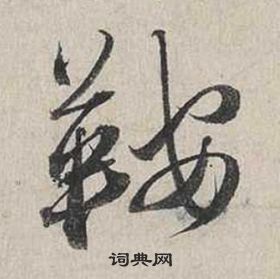 鞍
词典网